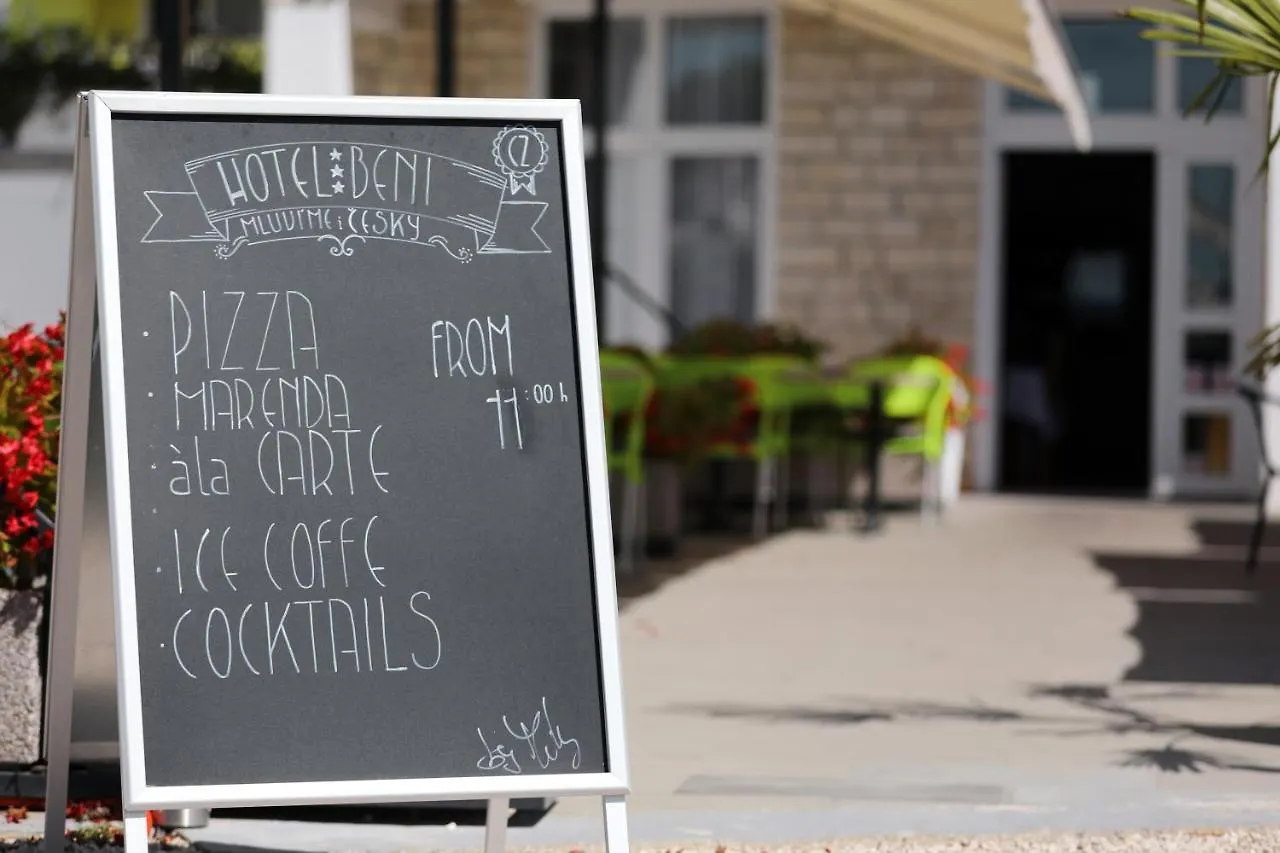 HOTEL BENI
CZ
MLUVÍME i ČESKY
PIZZA
FROM
MARENDA
11:00 h
àla CARTE
ICE COFFE
COCKTAILS
by